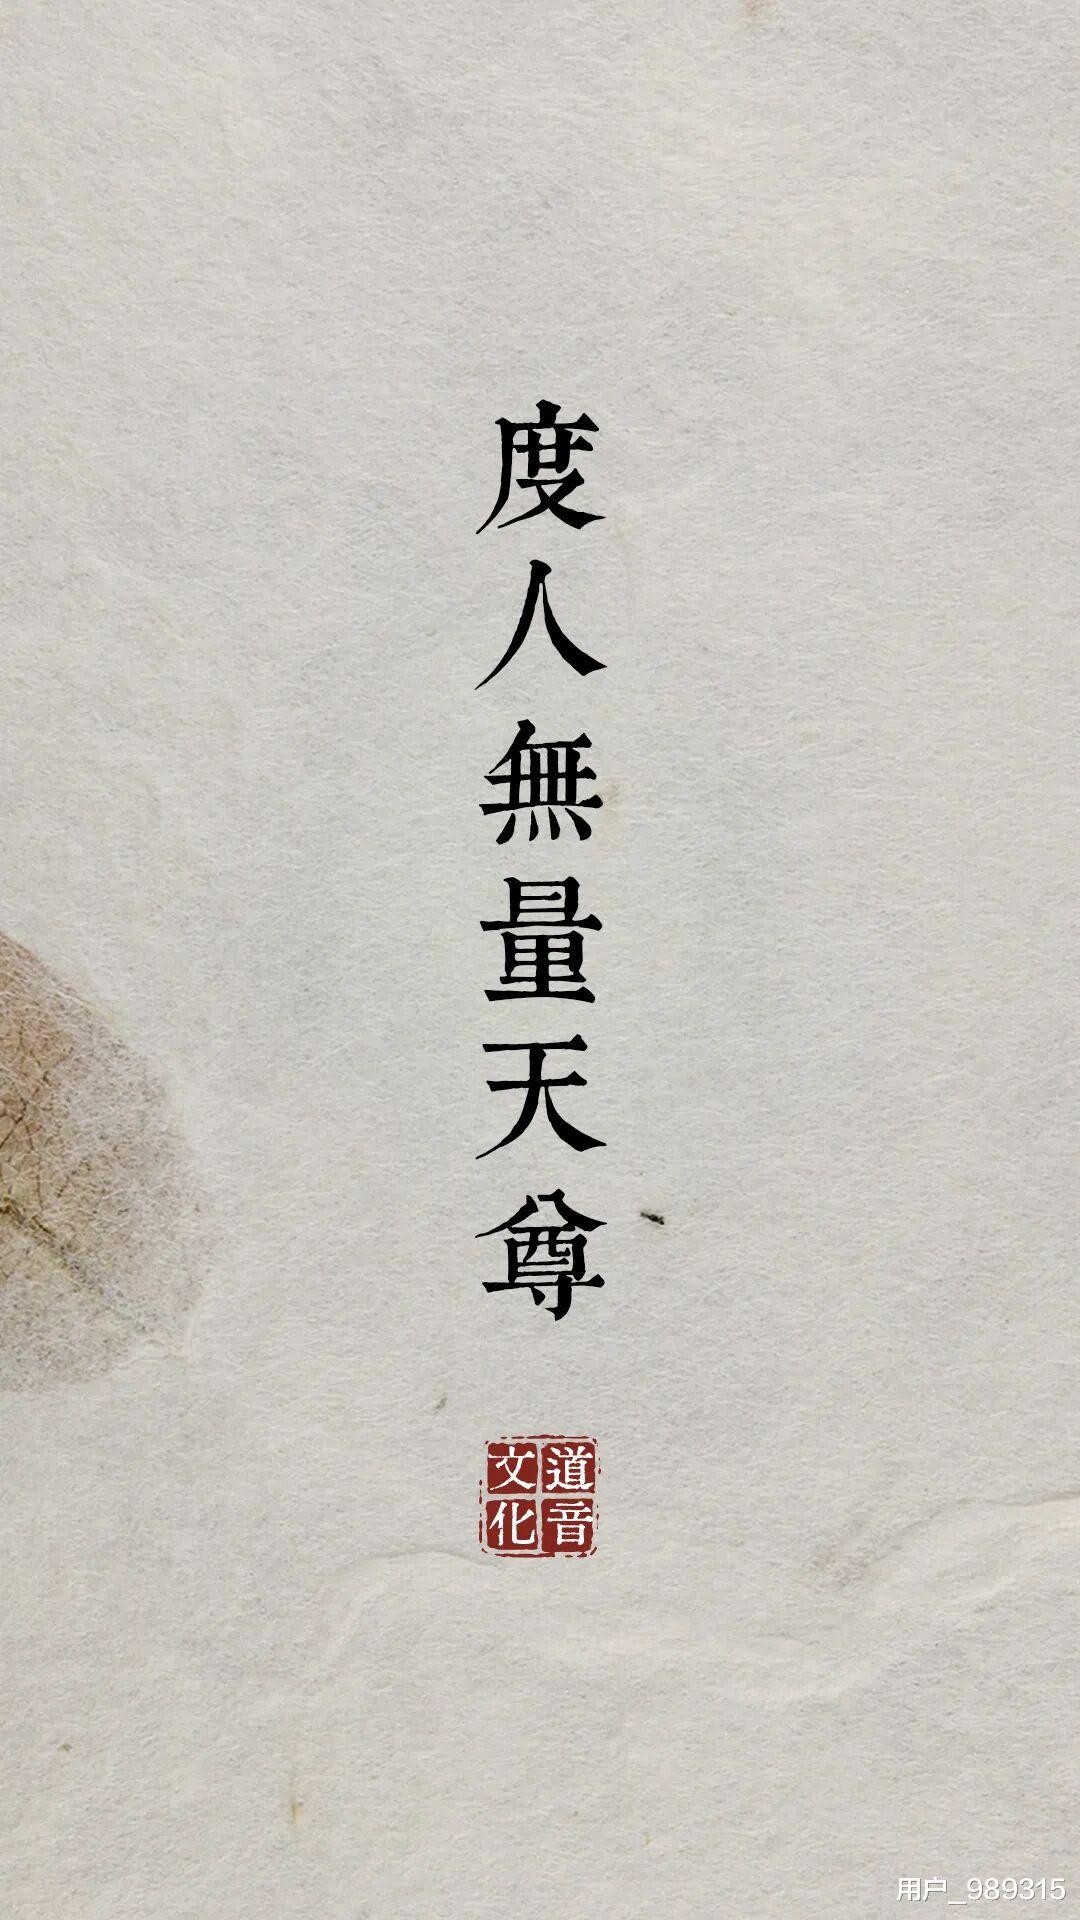 度人無量天尊
道音
文化
用户_989315